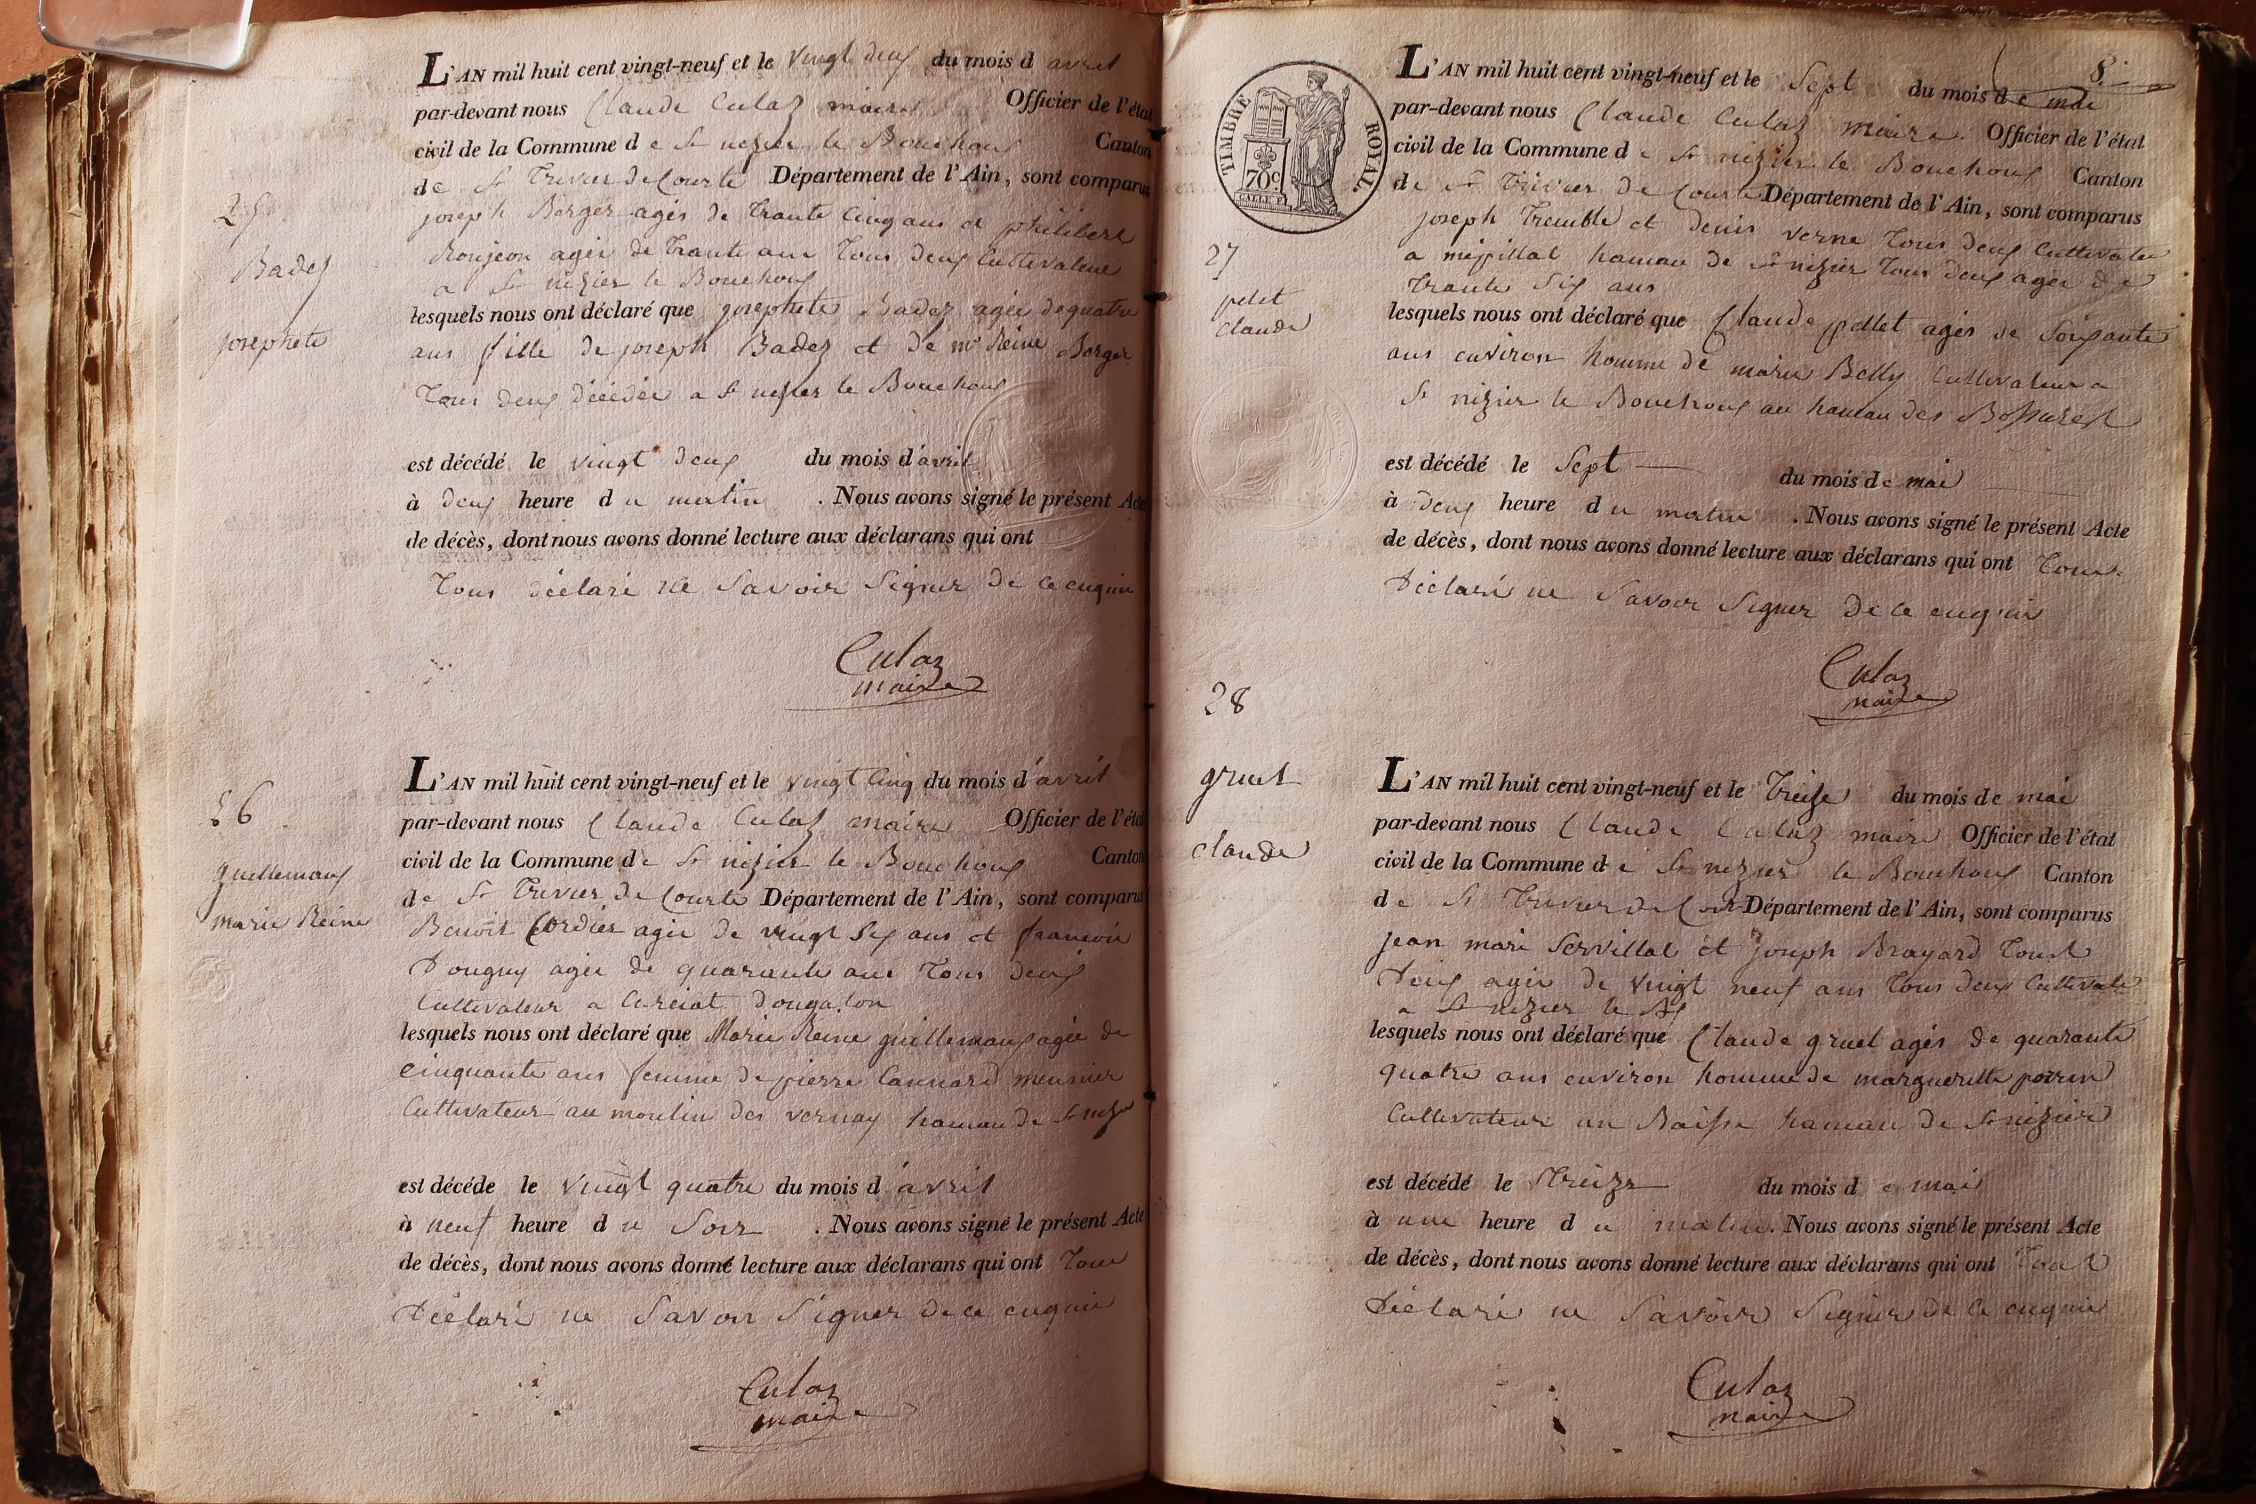 L'AN mil huit cent vingt-neuf et le vingt deux du mois d avril
par-devant nous Claude Culaz maire Officier de l'état
civil de la Commune d e St nizier le Bouchoux Canton
de St Trivier de Courte Département de l'Ain, sont comparus
25
joseph Berger agés de trante cinq ans et philibert
Ronjeon agés de trante ans tous deux Cultivateur
Badez
a St nizier le Bouchoux
josephete
lesquels nous ont déclaré que josephete Badez agée de quatre
ans fille de joseph Badez et de me Reine Berger
tous deux décédée a St nizier le Bouchoux
est décédé le vingt deux du mois d'avril
à deux heure d u matin . Nous avons signé le présent Acte
de décès, dont nous avons donné lecture aux déclarans qui ont
tous déclaré ne Savoir Signer de ce enquis
Culaz
maire
L'AN mil huit cent vingt-neuf et le vingt cinq du mois d'avril
26
par-devant nous Claude Culaz maire Officier de l'état
civil de la Commune de St nizier le Bouchoux Canton
guillemaux
de St Trivier de Courte Département de l'Ain, sont comparus
marie Reine
Benoit Cordier agée de vingt Six ans et francois
Dougny agée de quarante ans tous deux
Cultivateur a Curciat dongalon
lesquels nous ont déclaré que Marie Reine guillemaux agée de
cinquante ans femme de pierre Cannard meunier
Cultivateur au moulin des vernay hamau de St nizier
est décéde le vingt quatre du mois d'avril
à neuf heure d u Soir . Nous avons signé le présent Acte
de décès, dont nous avons donné lecture aux déclarans qui ont tous
Déclaré ne Savoir Signer de ce enquis
Culaz
maire
8
TIMBRE ROYAL
70c
L'AN mil huit cent vingt-neuf et le Sept du mois d e mai
par-devant nous Claude Culaz maire Officier de l'état
civil de la Commune d e St nizier le Bouchoux Canton
de St Trivier de Courte Département de l'Ain, sont comparus
joseph Tremble et denis verne tous deux Cultivateur
27
a mépillat hamau de St nizier tous deux agée de
trante Six ans
petit
claude
lesquels nous ont déclaré que Claude petlet agés de Soixante
ans environ homme de marie Belly Cultivateur a
St nizier le Bouchoux au hamau des
est décédé le Sept du mois de mai
à deux heure d u matin . Nous avons signé le présent Acte
de décès, dont nous avons donné lecture aux déclarans qui ont tous
Déclaré ne Savoir Signer de ce enquis
Culaz
maire
28
gruel
claude
L'AN mil huit cent vingt-neuf et le Treize du mois de mai
par-devant nous Claude Culaz maire Officier de l'état
civil de la Commune d e St nizier le Bouchoux Canton
d e St Trivier de Court Département de l'Ain, sont comparus
jean marie Servillat et joseph Brayard tous
Deux agée de vingt neuf ans tous deux Cultivate
a St nizier le
lesquels nous ont déclaré que Claude gruel agés de quarante
quatre ans environ homme de marguerite poirin
Cultivateur au Baisse hamau de St nizier
est décédé le Treize du mois d e mai
à une heure d u matin . Nous avons signé le présent Acte
de décès, dont nous avons donné lecture aux déclarans qui ont tous
Déclaré ne Savoir Signer de ce enquis
Culaz
maire